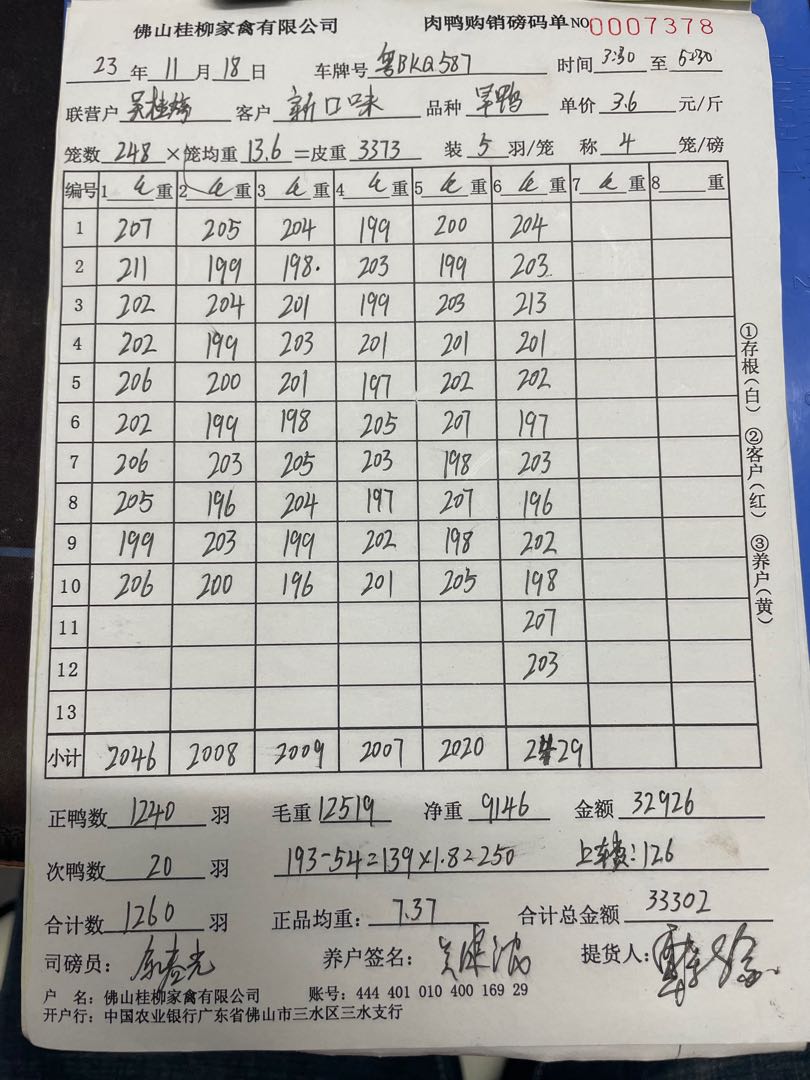 佛山桂柳家禽有限公司 肉鸭购销磅码单 NO 0007378
23 年 11 月 18 日 车牌号 粤BKQ587 时间 3:30 至 5:30
联营户 客户 新口味 品种 旱鸭 单价 3.6 元/斤
笼数 248 × 笼均重 13.6 = 皮重 3373 装 5 羽/笼 称 4 笼/磅
编号 1 毛 重 2 毛 重 3 毛 重 4 毛 重 5 毛 重 6 毛 重 7 毛 重 8 重
1 207 205 204 199 200 204
2 211 199 198. 203 199 203
3 202 204 201 199 203 213
4 202 199 203 201 201 201
5 206 200 201 197 202 202
6 202 199 198 205 207 197
7 206 203 205 203 198 203
8 205 196 204 197 207 196
9 199 203 199 202 198 202
10 206 200 196 201 205 198
11 207
12 203
13
小计 2046 2008 2009 2007 2020 2429
正鸭数 1240 羽 毛重 12519 净重 9146 金额 32926
次鸭数 20 羽 193-54=139×1.8=250 上车费:126
合计数 1260 羽 正品均重: 7.37 合计总金额 33302
司磅员: 养户签名: 提货人:
户 名: 佛山桂柳家禽有限公司 账号: 444 401 010 400 169 29
开户行: 中国农业银行广东省佛山市三水区三水支行
①存根(白) ②客户(红) ③养户(黄)